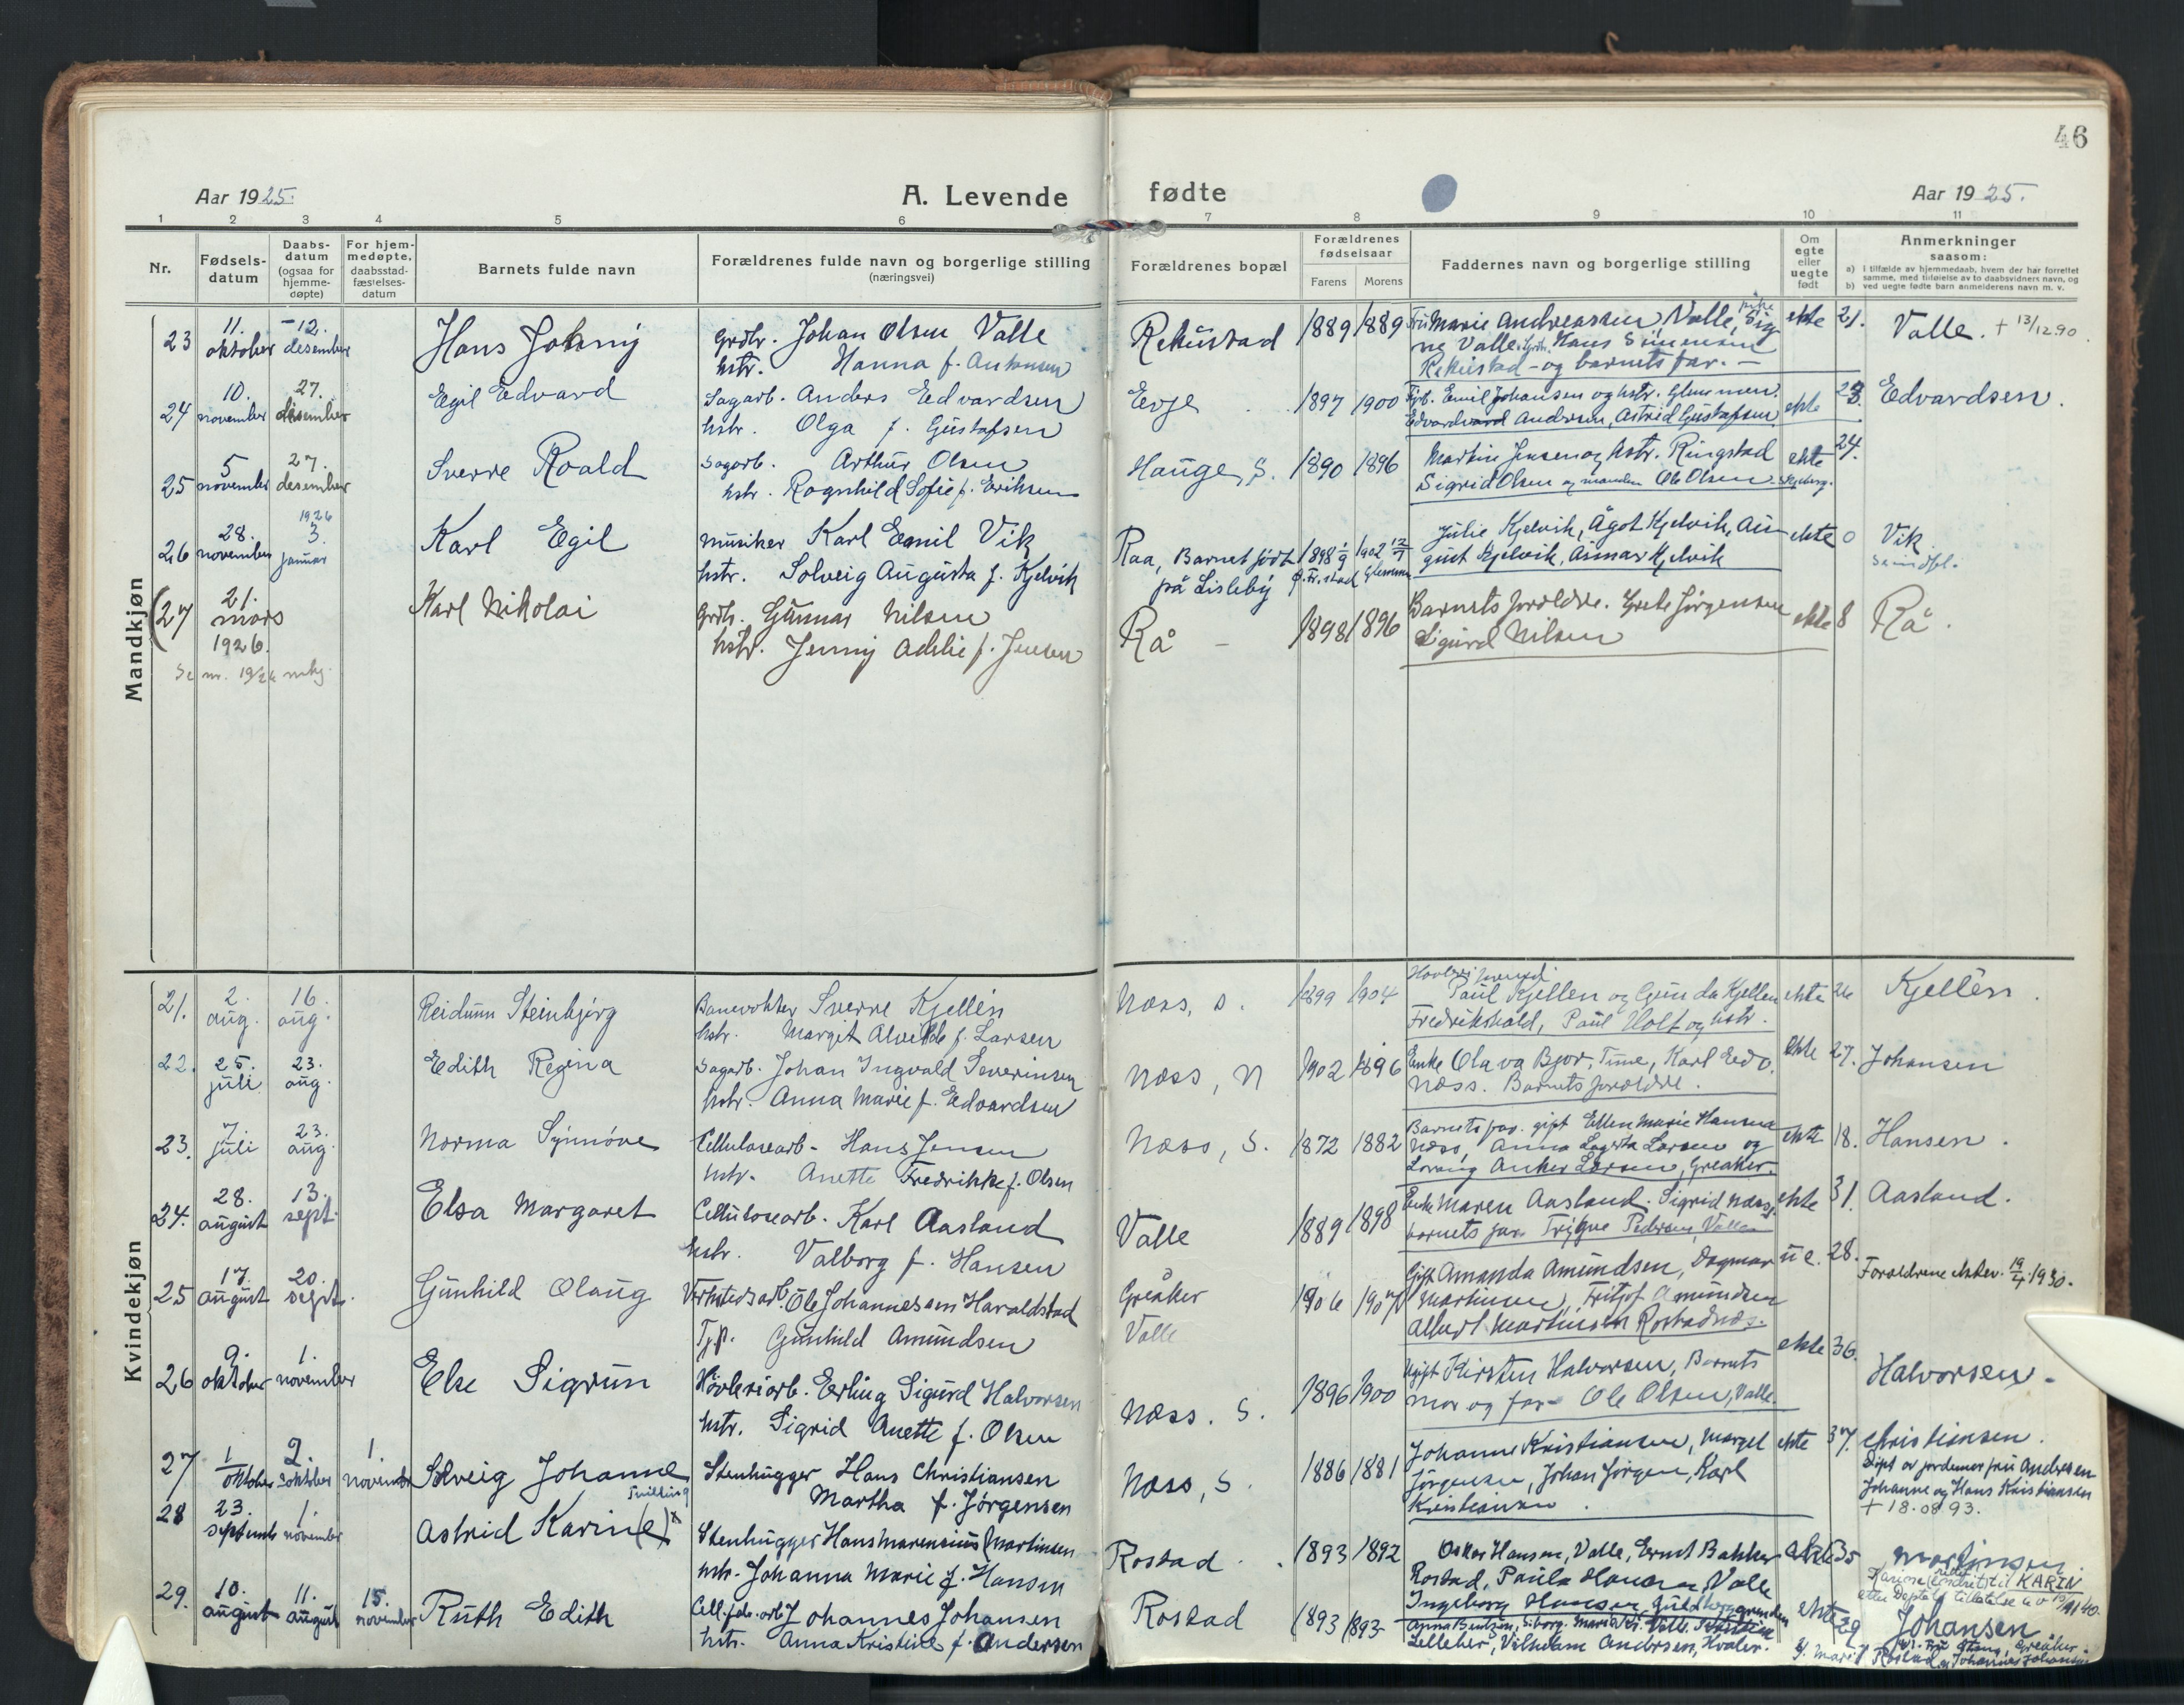 46
Aar 1925.
A. Levende fødte
Aar 1925.
1 2 3 4 5 6 7 8 9 10 11
Nr.
Fødsels-
datum
Daabs-
datum
(ogsaa for
hjemme-
døpte)
For hjem-
medøpte,
daabsstad-
fæstelses-
datum
Barnets fulde navn
Forældrenes fulde navn og borgerlige stilling
(næringsvei)
Forældrenes bopæl
Forældrenes
fødselsaar
Farens Morens
Faddernes navn og borgerlige stilling
Om
egte
eller
uegte
født
Anmerkninger
saasom:
a) i tilfælde av hjemmedaab, hvem der har forrettet
samme, med tilføielse av to daabsvidners navn, og
b) ved uegte fødte barn anmelderens navn m. v.
Mandkjøn
23 11. oktober 12. desember Hans Johnny
Grdbr. Johan Olsen Valle
hstr. Hanna f. Antonsen
Rekustad 1889 1889
Fru Marie Andreassen Valle, pike Sig
ne Valle. Grdbr. Hans Simensen
Rekustad - og barnets far. -
ekte 21. Valle. + 13/12 90.
24 10. november 27. desember Egil Edvard
Sagarb. Anders Edvardsen
hstr. Olga f. Gustafsen
Evje 1897 1900
Emil Johansen og hstr. Glemmen.
Edvard Andersen, Astrid Gustafsen
ekte 23. Edvardsen.
25 5 november 27. desember Sverre Roald
Sagarb. Arthur Olsen
hstr. Ragnhild Sofie f. Eriksen
Hauge, S. 1890 1896
Martin Jensen og hstr. Ringstad
Sigrid Olsen og manden Ole Olsen.
ekte 24.
26 28. november 1926 3. januar Karl Egil
Musiker Karl Emil Vik
hstr. Solveig Augusta f. Kjelvik
Raa, Barnet født
på Lisleby
1898 1/9 1902 12/7
f. Fr.stad Glemmen
Julie Kjelvik, Ågot Kjelvik, Au
gust Kjelvik, Aimar Kjelvik
ekte 0 Vik
27 21. mars 1926. Karl Nikolai
Grdb. Gunnar Nilsen
hstr. Jenny f. Jensen
Rå - 1898 1896
Barnets foreldre. Grete Jørgensen
Sigurd Nilsen
ekte 8 Rå.
Se nr. 19/26 mkj.
Kvindekjøn
21. 2. aug. 16. aug. Reidunn Steinbjørg
Banevokter Sverre Kjellén
hstr. Margit Alvilde f. Larsen
Næss, S. 1899 1904
Paul Kjellen og Gunda Kjellen
Fredrikshald, Paul Holt og hstr.
ekte 26 Kjellén.
22. 25. juli 23. aug. Edith Regina
Sagarb. Johan Ingvald Severinsen
hstr. Anna Marie f. Edvardsen
Næss, N 1902 1896
Enke Olava Bjor, Tune, Karl Edv.
Næss. Barnets foreldre.
ekte 27. Johansen
23. 7. juli 23. aug. Norma Synnøve
Cellulosearb. Hans Jensen
hstr. Anette Fredrikke f. Olsen
Næss, S. 1872 1882
Barnets far. gift Ellen Marie Hansen
Næss, Anna Lagerta Larsen og
Anker Larsen, Greaker.
ekte 18. Hansen.
24. 28. august 13. sept. Elsa Margaret
Cellulosearb. Karl Aasland
hstr. Valborg f. Hansen
Valle 1889 1898
Enke Maren Aasland. Sigrid Næss,
barnets far. Trygve Pedersen, Valle
ekte 31. Aasland.
25 17. august 20. sept. Gunhild Olaug
Verkstedsarb. Ole Johannesen Haraldstad
Tjp. Gunhild Amundsen
Greåker
Valle
1906 1907
Gift Amanda Amundsen, Dagmar
Martinsen, Fritjof Amundsen
Albert Martinsen Rostadnes.
u e. 28. Foreldrene ektev. 19/4 1930.
26 9. oktober 1. november Else Sigrun
Høvleriarb. Erling Sigurd Halvorsen
hstr. Sigrid Anette f. Olsen
Næss. S. 1896 1900
Ugift Kirsten Halvorsen, Barnets
mor og far - Ole Olsen, Valle.
ekte 36. Halvorsen -
27 1 oktober 2. oktober 1. november Solveig Johanne
Tvilling
Stenhugger Hans Christiansen
Martha f. Jørgensen
Næss, S. 1886 1881
Johanne Kristiansen, Margel
Jørgensen, Johan Jørgen, Karl
Kristiansen.
ekte 37. Christiansen.
Døpt av jordemor fru Andresen
Johanne og Hans Kristiansen
+ 18.08.93.
28 23. september 1. november Astrid Karin(e) x
Stenhugger Hans Marensius Martinsen
hstr. Johanna Marie f. Hansen
Rostad. 1893 1892
Oskar Hansen, Valle, Ernst Bakke
Rostad, Paula Hansen Valle
Ingeborg Hansen, Guldberggrunden
ekte 35 Martinsen
Karine rettet til KARIN
etter Dept. tillatelse
29. 10. august 11. august 15. november Ruth Edith
Cell.fabr.arb Johannes Johansen
hstr. Anna Kristine f. Andersen
Rostad 1893 1893
Lilleher, Vilhelm Andersen, Hvaler.
ekte 29 Johansen
Rostad og Johannes Johansen